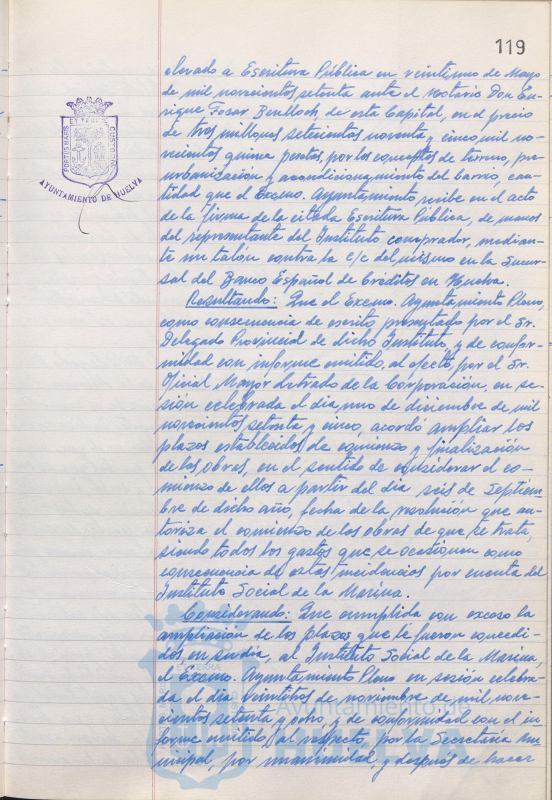 119
elevado a Escritura Pública en veintiuno de Mayo
de mil novecientos setenta ante el notario Don En-
rique Fosar Benlloch de esta Capital, en el precio
de tres millones setecientos noventa y cinco mil no-
vecientos quince pesetas, por los conceptos de terreno, pre-
urbanización y acondicionamiento del barrio, can-
tidad que el Excmo. Ayuntamiento, recibe en el acto
de la firma de la citada Escritura Pública, de manos
del representante del Instituto comprador, median-
te un talón contra la c/c del mismo en la Sucur-
sal del Banco Español de Créditos en Huelva.
Resultando: Que el Excmo. Ayuntamiento Pleno,
como consecuencia de escrito presentado por el Sr.
Delegado Provincial de dicho Instituto, y de confor-
midad con informe emitido, al efecto, por el Sr.
Oficial Mayor Letrado de la Corporación, en se-
sión celebrada el día uno de diciembre de mil
novecientos setenta y cinco, acordó ampliar los
plazos establecidos de comienzo y finalización
de las obras, en el sentido de considerar el co-
mienzo de ellos a partir del día seis de Septiem-
bre de dicho año, fecha de la resolución que au-
toriza el comienzo de las obras de que se trata,
siendo todos los gastos que se ocasionen como
consecuencia de estas incidencias por cuenta del
Instituto Social de la Marina.
Considerando: Que cumplida con exceso la
ampliación de los plazos que le fueron concedi-
dos, en su día, al Instituto Social de la Marina,
el Excmo. Ayuntamiento Pleno en sesión celebra-
da el día veintitres de noviembre de mil nove-
cientos setenta y ocho, y de conformidad con el in-
forme emitido, al respecto, por la Secretaría Mu-
nicipal, por unanimidad, y después de hacer
PORTUS MARIS ET TERRAE CUSTODIA
AYUNTAMIENTO DE HUELVA
Ayuntamiento de
HUELVA